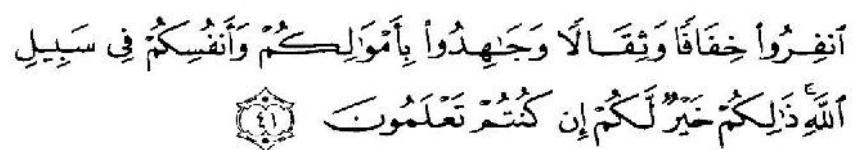 ٱنفِرُواْ خِفَافًا وَثِقَالًا وَجَٰهِدُواْ بِأَمْوَٰلِكُمْ وَأَنفُسِكُمْ فِى سَبِيلِ
ٱللَّهِ ۚ ذَٰلِكُمْ خَيْرٌ لَّكُمْ إِن كُنتُمْ تَعْلَمُونَ ٤١